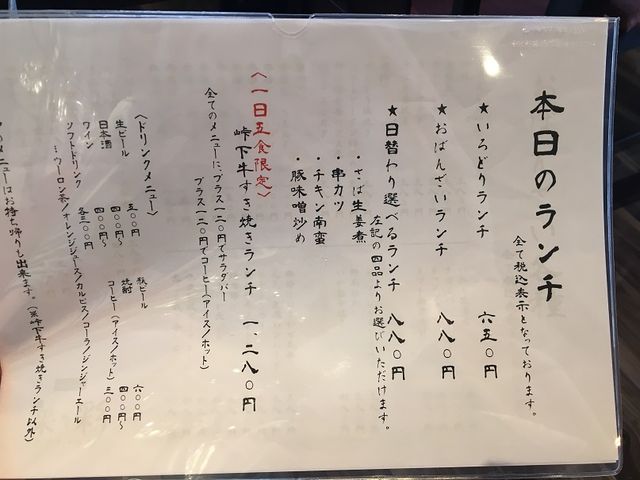 本日のランチ
全て税込表示となっております。
★いろどりランチ 六五〇円
★おばんざいランチ 八八〇円
★日替わり選べるランチ 八八〇円
左記の四品よりお選びいただけます。
・さば生姜煮
・串カツ
・チキン南蛮
・豚味噌炒め
〈一日五食限定〉
峠下牛すき焼きランチ 一、二八〇円
全てのメニューに、プラス一二〇円でサラダバー
プラス一二〇円でコーヒー(アイス/ホット)
〈ドリンクメニュー〉
生ビール 五〇〇円 瓶ビール 六〇〇円
日本酒 四〇〇円~ 焼酎 四〇〇円~
ワイン 四〇〇円~ コーヒー(アイス/ホット) 三〇〇円
ソフトドリンク 各三〇〇円
…ウーロン茶/オレンジジュース/カルピス/コーラ/ジンジャーエール
のメニューはお持ち帰りも出来ます。(※峠下牛すき焼きランチ以外)